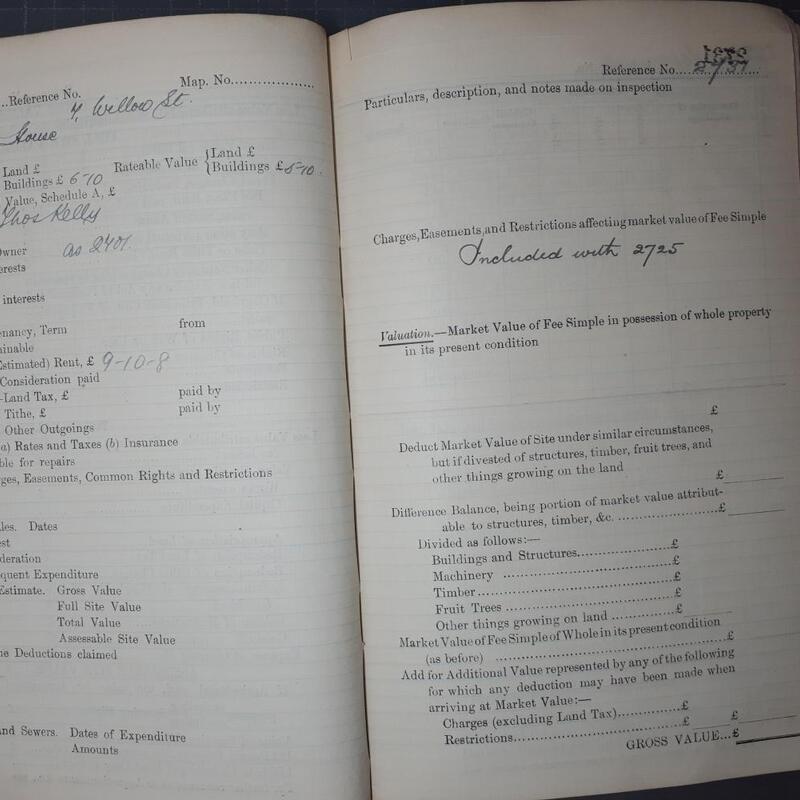 ..Reference No. Map. No...................
7, Willow St.
House
Land £
Buildings £ 6-10 Rateable Value {Land £
{Buildings £5-10.
Value, Schedule A, £
Thos Kelly
Owner as 2701.
erests
interests
enancy, Term from
minable
Estimated) Rent, £ 9-10-8
Consideration paid
-Land Tax, £ paid by
Tithe, £ paid by
Other Outgoings
a) Rates and Taxes (b) Insurance
ble for repairs
rges, Easements, Common Rights and Restrictions
les. Dates
est
deration
equent Expenditure
Estimate. Gross Value
Full Site Value
Total Value
Assessable Site Value
he Deductions claimed
nd Sewers. Dates of Expenditure
Amounts
Reference No....2731....
Particulars, description, and notes made on inspection
Charges, Easements, and Restrictions affecting market value of Fee Simple
Included with 2725
Valuation.—Market Value of Fee Simple in possession of whole property
in its present condition
£
Deduct Market Value of Site under similar circumstances,
but if divested of structures, timber, fruit trees, and
other things growing on the land
£
Difference Balance, being portion of market value attribut-
able to structures, timber, &c. ......................£
Divided as follows:—
Buildings and Structures....................£
Machinery ...................................£
Timber........................................£
Fruit Trees ...................................£
Other things growing on land ...............£
Market Value of Fee Simple of Whole in its present condition
(as before) ................................................£
Add for Additional Value represented by any of the following
for which any deduction may have been made when
arriving at Market Value:—
Charges (excluding Land Tax)..............£
Restrictions...................................£ £
GROSS VALUE...£